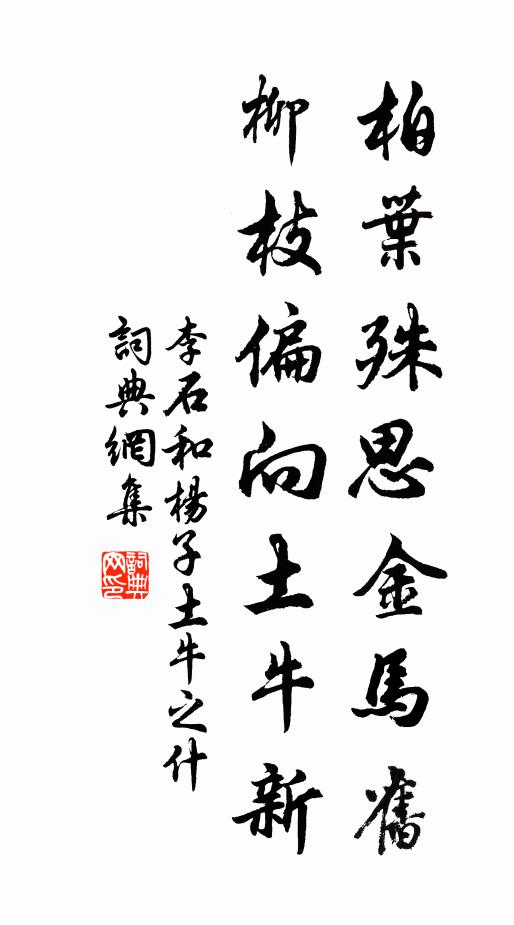 柏葉殊思金馬舊
柳枝偏向土牛新
李石和楊子土牛之什
詞典網集
詞典網印